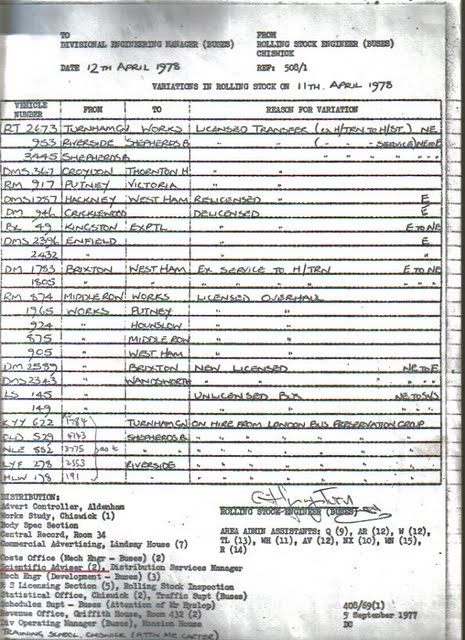 TO FROM
DIVISIONAL ENGINEERING MANAGER (BUSES) ROLLING STOCK ENGINEER (BUSES)
CHISWICK
DATE 12TH APRIL 1978 REF: 508/1
VARIATIONS IN ROLLING STOCK ON 11TH. APRIL 1978
VEHICLE NUMBER FROM TO REASON FOR VARIATION
RT 2673 TURNHAM GN WORKS LICENSED TRANSFER (ex H/TRN TO H/ST.) NE
953 RIVERSIDE SHEPHERDS B " " ( - - SERVICE) NE TO E
3445 SHEPHERDS B " " " "
DMS 367 CROYDON THORNTON H " "
RM 917 PUTNEY VICTORIA " "
DMS 1257 HACKNEY WEST HAM RELICENSED E
DM 946 CRICKLEWOOD DELICENSED E
49 KINGSTON EXPTL " E TO NE
DMS 2396 ENFIELD " E
2432 " " "
DM 1783 BRIXTON WEST HAM EX SERVICE TO H/TRN E TO NE
1805 " " " " " " " "
RM 874 MIDDLE ROW WORKS LICENSED OVERHAUL
1965 WORKS PUTNEY " "
924 " HOUNSLOW " "
875 " MIDDLE ROW " "
905 " WEST HAM " "
DM 2589 " BRIXTON NEW LICENSED NE TO E
DMS 2343 " WANDSWORTH " " " " "
LS 145 " UNLICENSED NE TO
149 " " " " " "
KYY 622 1784 TURNHAM GN ON HIRE FROM LONDON BUS PRESERVATION GROUP
OLD 529 4143 SHEPHERDS B " " " " " "
NLE 882 3775 " " " " " " "
LYF 278 2553 RIVERSIDE " " " " " "
HLW 178 191 " " " " " " "
DISTRIBUTION:
Advert Controller, Aldenham
Works Study, Chiswick (1) ROLLING STOCK ENGINEER (BUSES)
Body Spec Section
Central Record, Room 34
Commercial Advertising, Lindsay House (7)
AREA ADMIN ASSISTANTS: Q (9), AR (12), W (12),
TL (13), WH (11), AV (12), NX (10), WN (15),
R (14)
Costs Office (Mech Engr - Buses) (2)
Scientific Adviser (2), Distribution Services Manager
Mech Engr (Development - Buses) (3)
R S Licensing Section (5), Rolling Stock Inspection
Statistical Office, Chiswick (2), Traffic Supt (Buses)
Schedules Supt - Buses (Attention of Mr Hyslop) 408/69(1)
Revenue Office, Griffith House, Room 432 (2) 9 September 1977
Div Operating Manager (Buses), Mansion House DG
TRAINING SCHOOL, CHISWICK (ATTN MR CARTER)